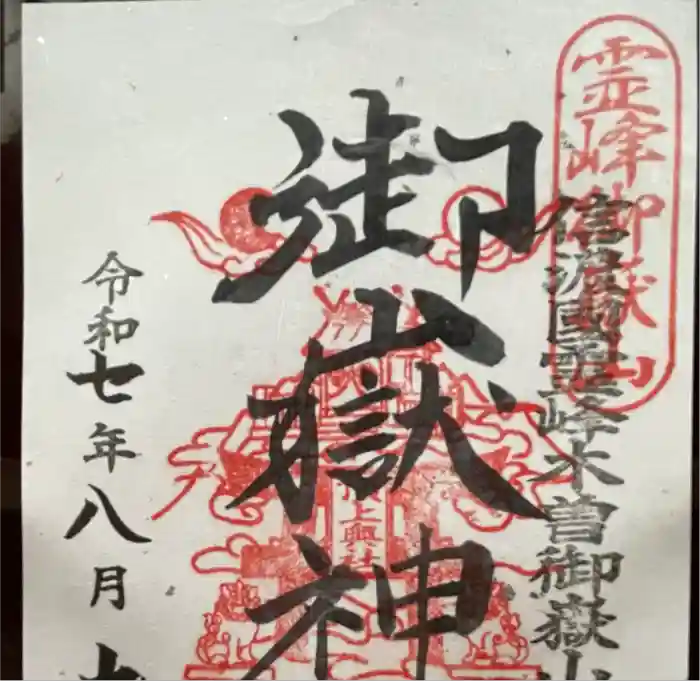 霊峰御嶽山
信濃國霊峰木曽御嶽山
御嶽神
頂上奥社
令和七年八月